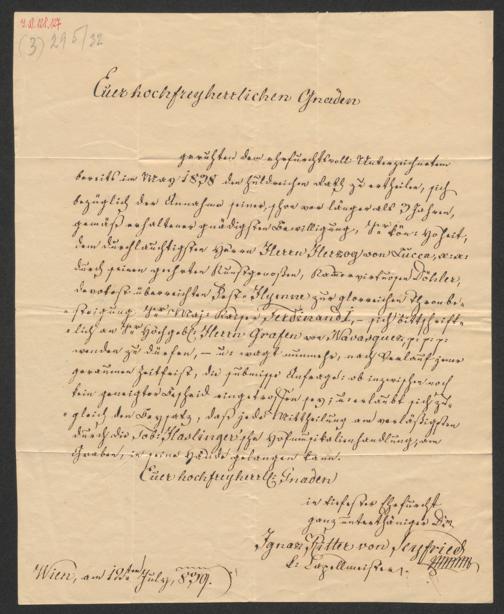 I.N. 121.127
(3) 295/32
Euer hochfreyherrlichen Gnaden
geruhten dem ehrfurchtsvoll Unterzeichnetem
bereits im May 1838 den huldreichen Rath zu ertheilen, sich
bezüglich der Annahme seiner, schon vor länger als 3 Jahren,
gemäß erhaltener gnädigsten Bewilligung, Sr kön: Hoheit,
dem durchlauchtigsten Herrn Herrn Herzog von Lucca, x: x:
durch seinen geehrten Kunstgenossen, Döhler,
devotest überreichten Fest-Hymne zur glorreichen Thronbe-
steigung Sr Maj: Kaiser Ferdinand I, – sich bittschrift-
lich an Sr Hochgeb: Herrn Grafen von p: p: p:
wenden zu dürfen, – u: wagt nunmehr, nach Verlauf jener
geraumen Zeitfrist, die submisse Anfrage: ob inzwischen noch
kein geneigter Bescheid eingetroffen sey; u: erlaubt sich zu-
gleich den Beysatz, daß jede Mittheilung am verläßlichsten
durch die Tob: Haslinger'sche Hofmusikalienhandlung, am
Graben, in seine Hände gelangen kann.
Euer hochfreyherrl: Gnaden
in tiefester Ehrfurcht
ganz unterthäniger Dr
Ignaz Ritter von Seyfried
Capellmeister.
Wien, am July, 1839.